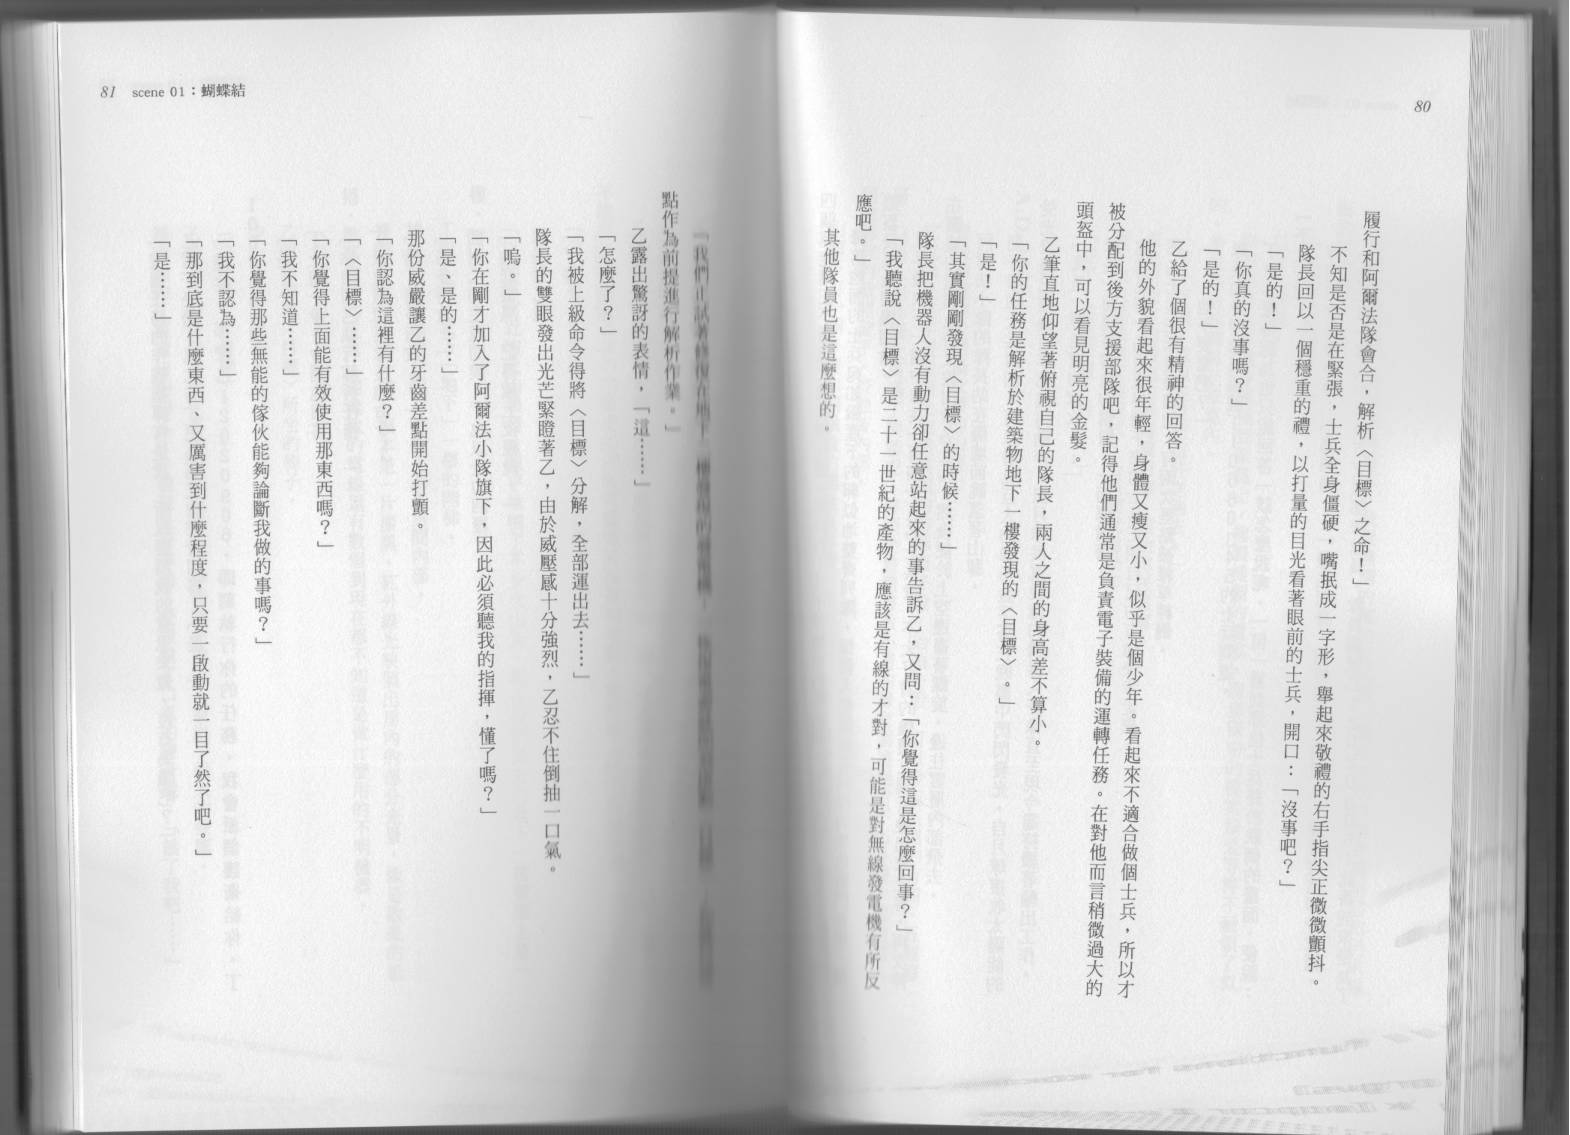 80
履行和阿爾法隊會合，解析〈目標〉之命！」
不知是否是在緊張，士兵全身僵硬，嘴抿成一字形，舉起來敬禮的右手指尖正微微顫抖。
隊長回以一個穩重的禮，以打量的目光看著眼前的士兵，開口：「沒事吧？」
「是的！」
「你真的沒事嗎？」
「是的！」
乙給了個很有精神的回答。
他的外貌看起來很年輕，身體又瘦又小，似乎是個少年。看起來不適合做個士兵，所以才
被分配到後方支援部隊吧，記得他們通常是負責電子裝備的運轉任務。在對他而言稍微過大的
頭盔中，可以看見明亮的金髮。
乙筆直地仰望著俯視自己的隊長，兩人之間的身高差不算小。
「你的任務是解析於建築物地下一樓發現的〈目標〉。」
「是！」
「其實剛剛發現〈目標〉的時候……」
隊長把機器人沒有動力卻任意站起來的事告訴乙，又問：「你覺得這是怎麼回事？」
「我聽說〈目標〉是二十一世紀的產物，應該是有線的才對，可能是對無線發電機有所反
應吧。」
其他隊員也是這麼想的。
81 scene 01：蝴蝶結
「我們正試著修復在地下一樓發現的
點作為前提進行解析作業。」
乙露出驚訝的表情，「這……」
「怎麼了？」
「我被上級命令得將〈目標〉分解，全部運出去……」
隊長的雙眼發出光芒緊瞪著乙，由於威壓感十分強烈，乙忍不住倒抽一口氣。
「嗚。」
「你在剛才加入了阿爾法小隊旗下，因此必須聽我的指揮，懂了嗎？」
「是、是的……」
那份威嚴讓乙的牙齒差點開始打顫。
「你認為這裡有什麼？」
「〈目標〉……」
「你覺得上面能有效使用那東西嗎？」
「我不知道……」
「你覺得那些無能的傢伙能夠論斷我做的事嗎？」
「我不認為……」
「那到底是什麼東西、又厲害到什麼程度，只要一啟動就一目了然了吧。」
「是……」